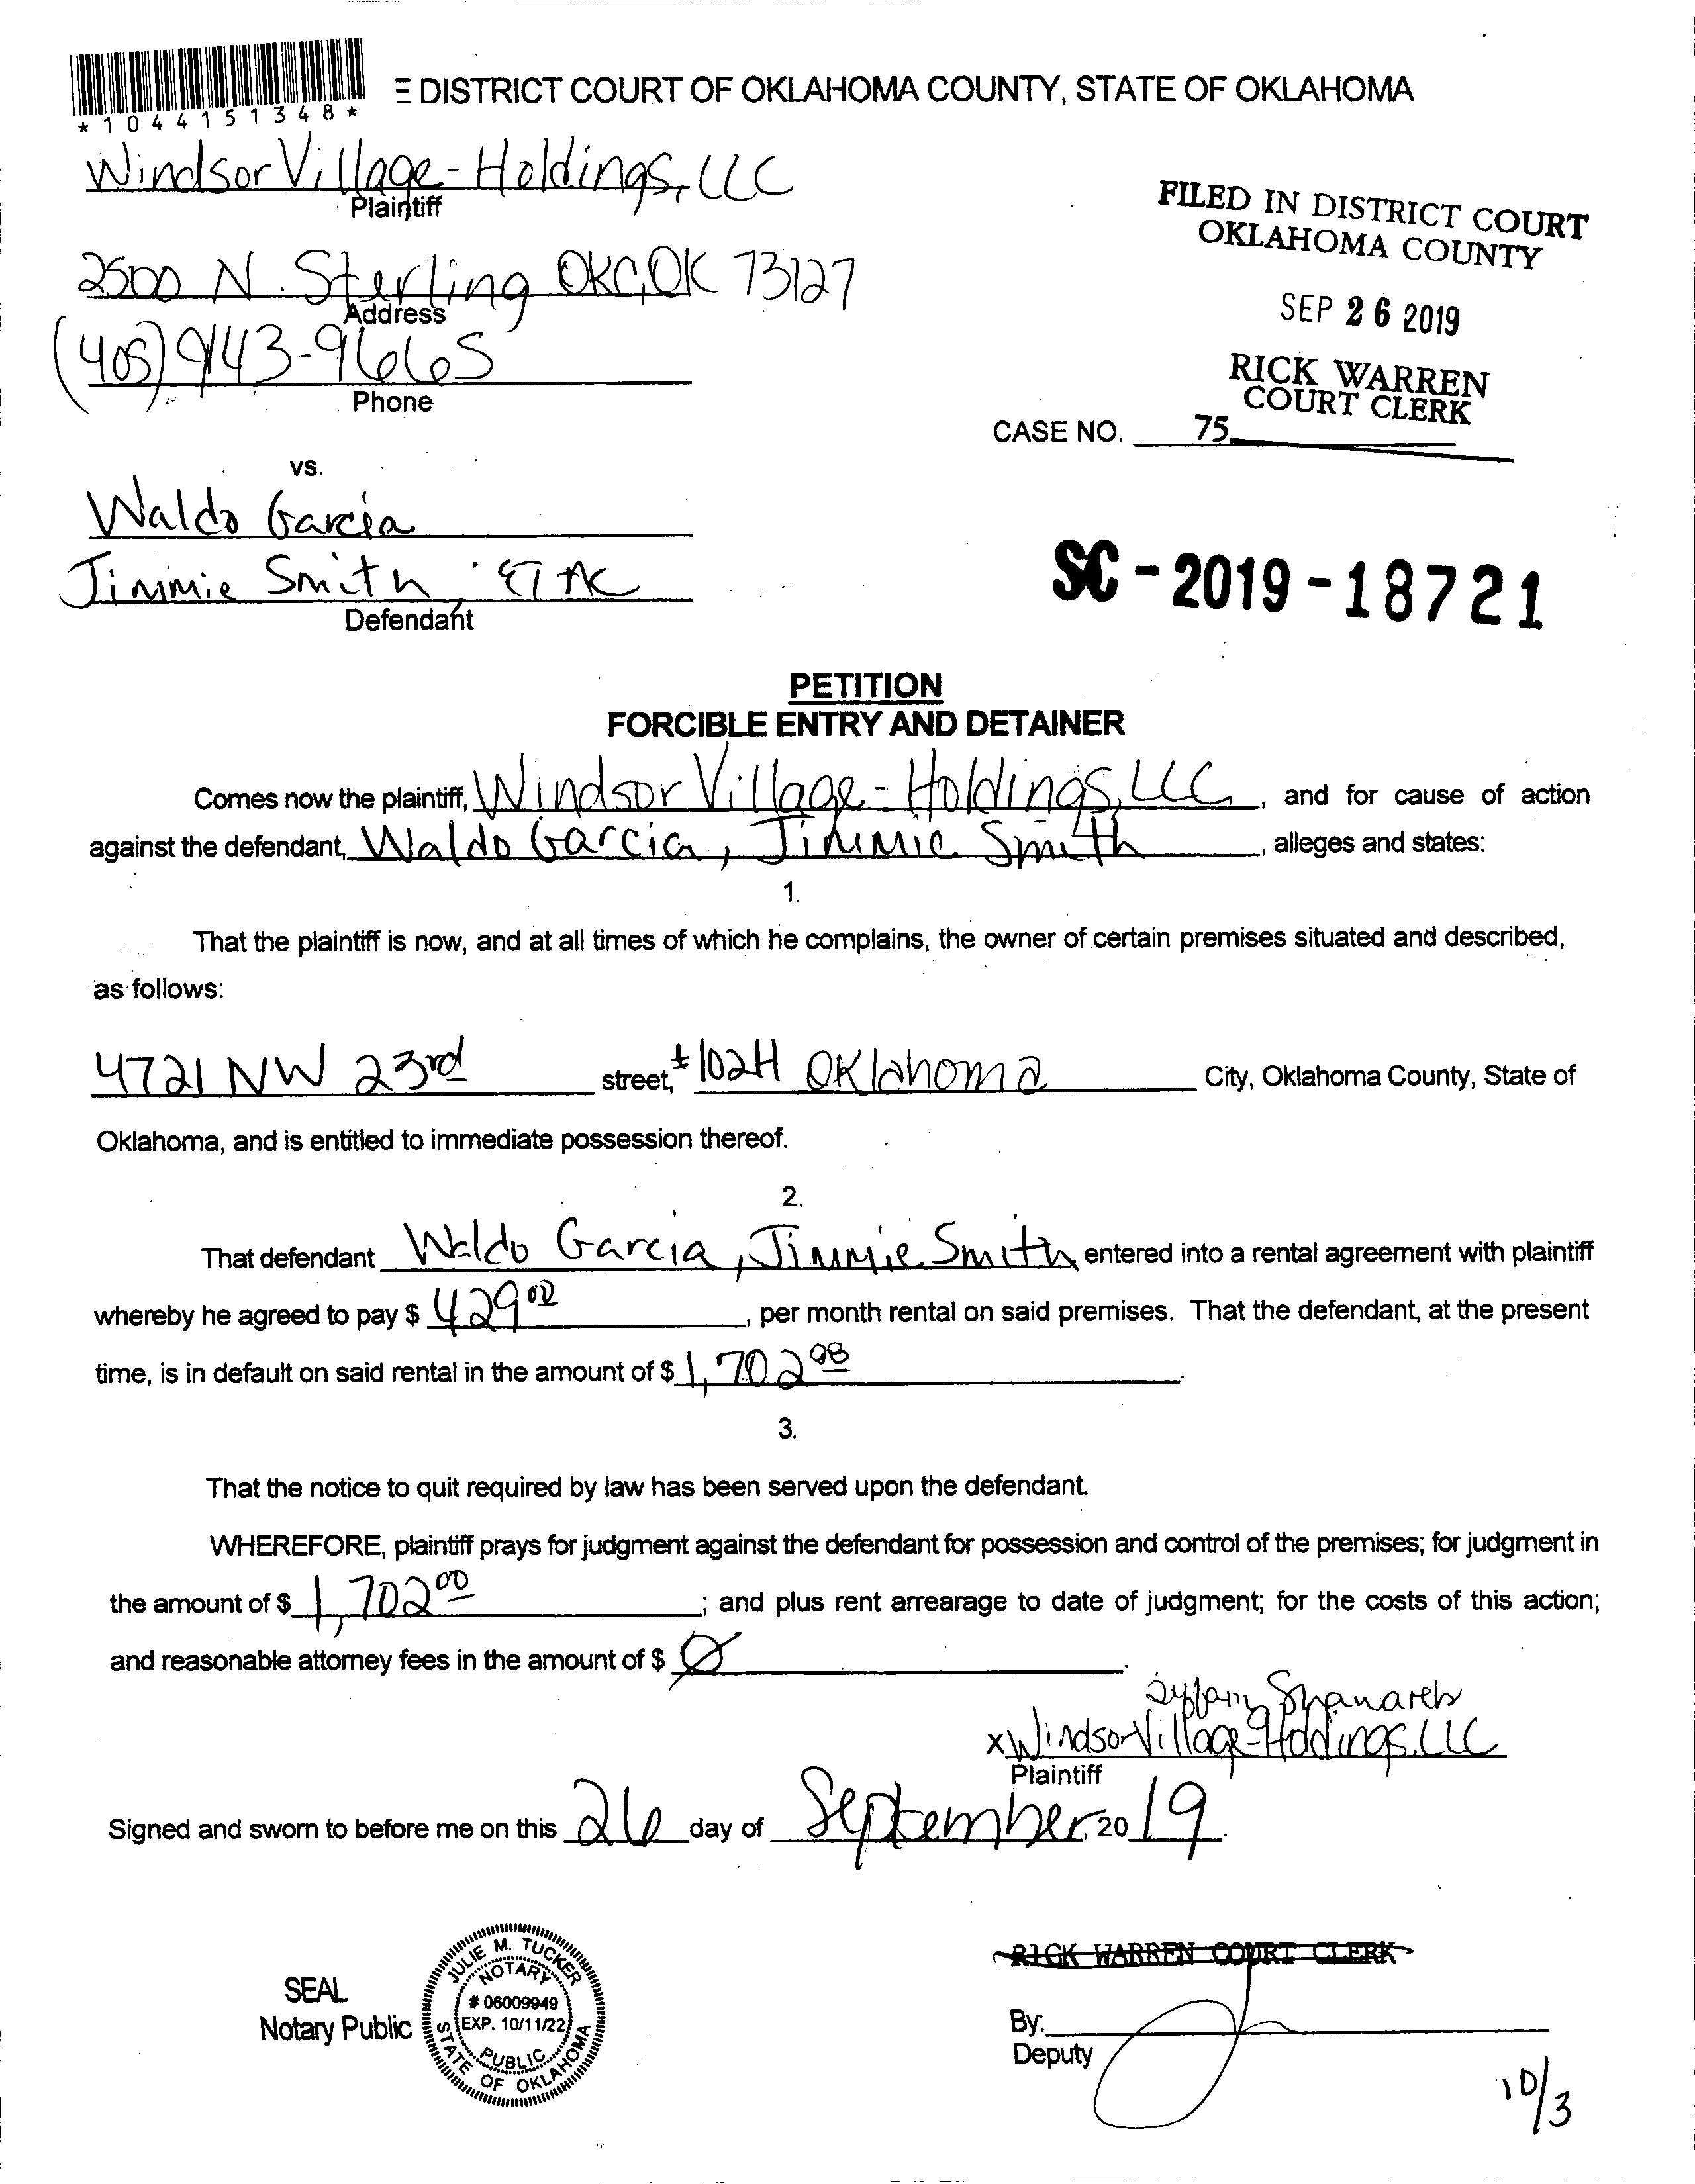 *1044151348*
E DISTRICT COURT OF OKLAHOMA COUNTY, STATE OF OKLAHOMA
Windsor Village-Holdings, LLC
Plaintiff
2500 N. Sterling OKC, OK 73127
Address
(405) 943-9665
Phone
FILED IN DISTRICT COURT
OKLAHOMA COUNTY
SEP 26 2019
RICK WARREN
COURT CLERK
CASE NO. 75
vs.
Waldo Garcia
Jimmie Smith,
Defendant
SC-2019-18721
PETITION
FORCIBLE ENTRY AND DETAINER
Comes now the plaintiff, Windsor Village-Holdings, LLC, and for cause of action
against the defendant, Waldo Garcia, Jimmie Smith, alleges and states:
1.
That the plaintiff is now, and at all times of which he complains, the owner of certain premises situated and described,
as follows:
4721 NW 23rd street, #102H Oklahoma City, Oklahoma County, State of
Oklahoma, and is entitled to immediate possession thereof.
2.
That defendant Waldo Garcia, Jimmie Smith entered into a rental agreement with plaintiff
whereby he agreed to pay $ 429, per month rental on said premises. That the defendant, at the present
time, is in default on said rental in the amount of $ 1,702.
3.
That the notice to quit required by law has been served upon the defendant.
WHEREFORE, plaintiff prays for judgment against the defendant for possession and control of the premises; for judgment in
the amount of $ 1,702 00; and plus rent arrearage to date of judgment; for the costs of this action;
and reasonable attorney fees in the amount of $ Ø.
x Windsor Village-Holdings, LLC
Plaintiff
Signed and sworn to before me on this 26 day of September, 2019.
SEAL
Notary Public
JULIE M. TUCKER
NOTARY
# 06009949
EXP. 10/11/22
PUBLIC
STATE OF OKLAHOMA
RICK WARREN COURT CLERK
By:
Deputy
10/3